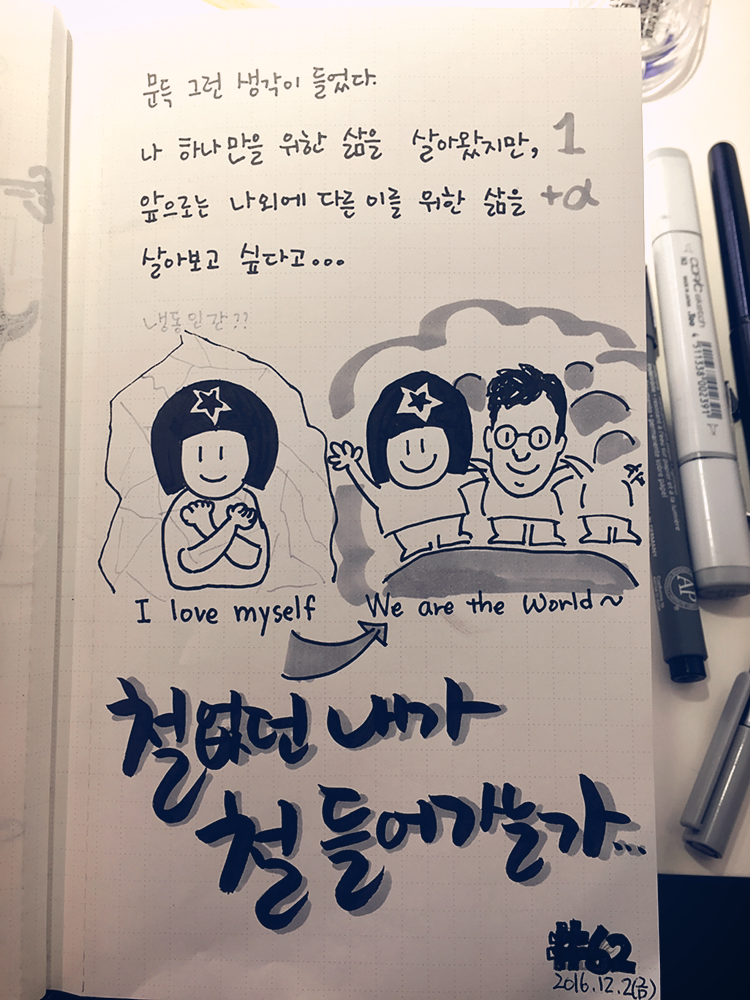 문득 그런 생각이 들었다.
나 하나만을 위한 삶을 살아왔지만, 1
앞으로는 나 외에 다른 이를 위한 삶을 +α
살아보고 싶다고...
냉동인간??
I love myself
We are the World~
철없던 내가
철 들어가는가...
#62
2016.12.2(금)
COPIC sketch
4511338002391
AP